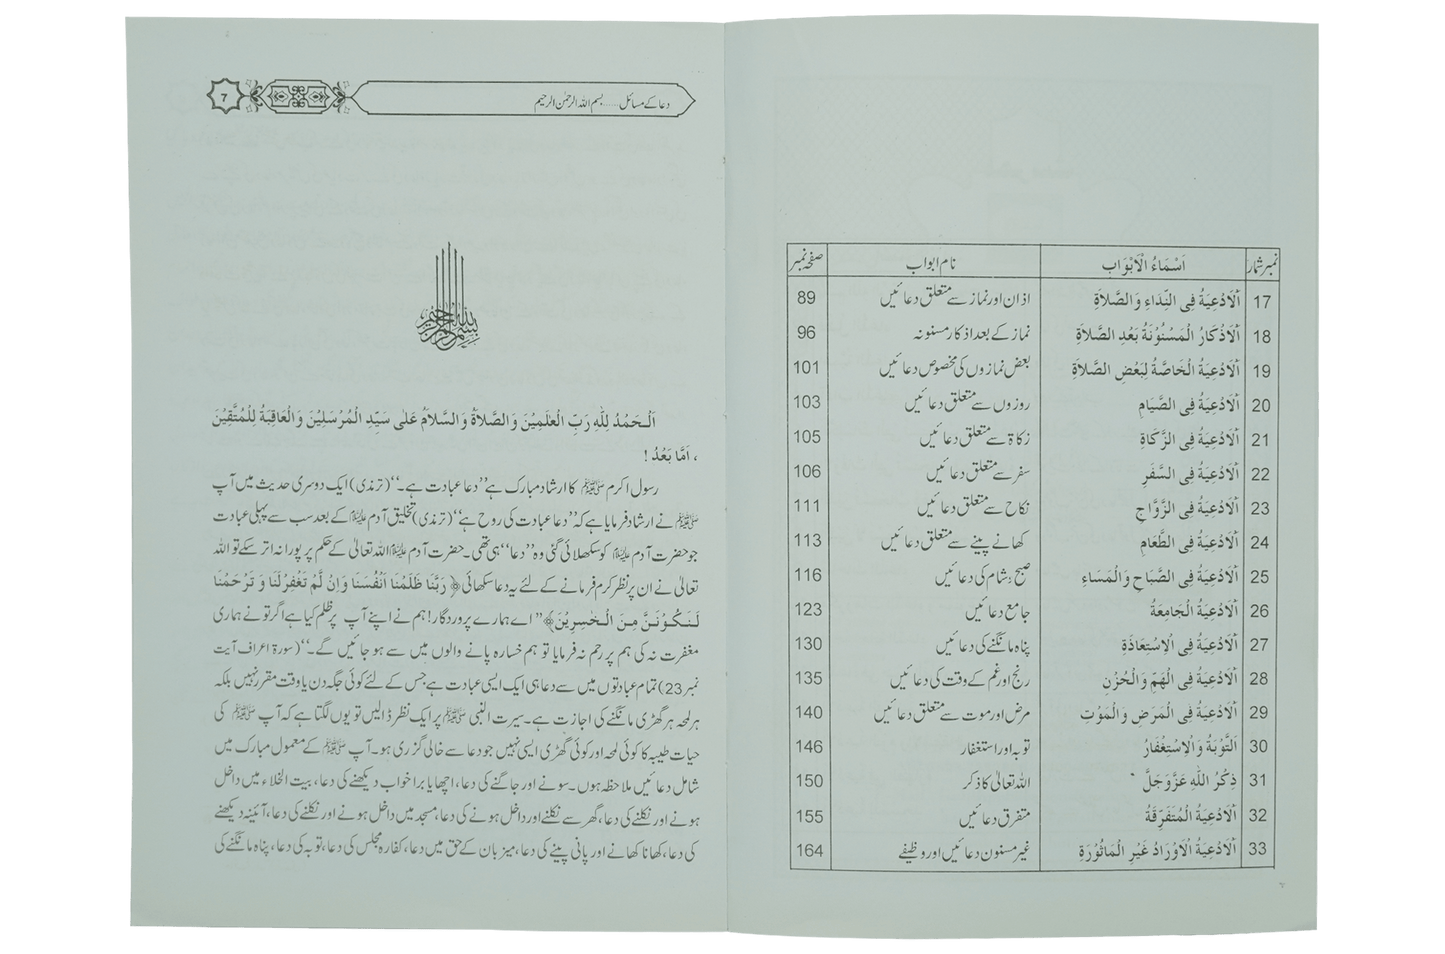 نمبر شمار اَسْمَاءُ الْاَبْوَاب نام ابواب صفحہ نمبر
17 اَلْاَدْعِيَةُ فِى النِّدَاءِ وَ الصَّلاَةِ اذان اور نماز سے متعلق دعائیں 89
18 اَلْاَذْكَارُ الْمَسْنُوْنَةُ بَعْدِ الصَّلاَةِ نماز کے بعد اذکار مسنونہ 96
19 اَلْاَدْعِيَةُ الْخَاصَّةُ لِبَعْضِ الصَّلاَةِ بعض نمازوں کی مخصوص دعائیں 101
20 اَلْاَدْعِيَةُ فِى الصِّيَامِ روزوں سے متعلق دعائیں 103
21 اَلْاَدْعِيَةُ فِى الزَّكَاةِ زکاۃ سے متعلق دعائیں 105
22 اَلْاَدْعِيَةُ فِى السَّفَرِ سفر سے متعلق دعائیں 106
23 اَلْاَدْعِيَةُ فِى الزَّوَّاجِ نکاح سے متعلق دعائیں 111
24 اَلْاَدْعِيَةُ فِى الطَّعَامِ کھانے پینے سے متعلق دعائیں 113
25 اَلْاَدْعِيَةُ فِى الصَّبَاحِ وَالْمَسَاءِ صبح و شام کی دعائیں 116
26 اَلْاَدْعِيَةُ الْجَامِعَةُ جامع دعائیں 123
27 اَلْاَدْعِيَةُ فِى الْاِسْتِعَاذَةِ پناہ مانگنے کی دعائیں 130
28 اَلْاَدْعِيَةُ فِى الْهَمِّ وَالْحُزْنِ رنج اور غم کے وقت کی دعائیں 135
29 اَلْاَدْعِيَةُ فِى الْمَرَضِ وَالْمَوْتِ مرض اور موت سے متعلق دعائیں 140
30 اَلتَّوْبَةُ وَالْاِسْتِغْفَارُ توبہ اور استغفار 146
31 ذِكْرُ اللّٰهِ عَزَّوَجَلَّ اللہ تعالیٰ کا ذکر 150
32 اَلْاَدْعِيَةُ الْمُتَفَرِّقَةُ متفرق دعائیں 155
33 اَلْاَدْعِيَةُ الْاَوْرَادُ غَيْرِ الْمَاثُوْرَةِ غیر مسنون دعائیں اور وظیفے 164
دعا کے مسائل ...... بسم اللہ الرحمٰن الرحیم 7
بسم الله الرحمن الرحيم
اَلْحَمْدُ لِلّٰهِ رَبِّ الْعٰلَمِيْنَ وَالصَّلاَةُ وَالسَّلاَمُ عَلٰى سَيِّدِ الْمُرْسَلِيْنَ وَالْعَاقِبَةُ لِلْمُتَّقِيْنَ
، اَمَّا بَعْدُ !
رسول اکرم ﷺ کا ارشاد مبارک ہے ’’دعا عبادت ہے۔‘‘ (ترمذی) ایک دوسری حدیث میں آپ
ﷺ نے ارشاد فرمایا ہے کہ ’’دعا عبادت کی روح ہے‘‘ (ترمذی) تخلیق آدم علیہ السلام کے بعد سب سے پہلی عبادت
جو حضرت آدم علیہ السلام کو سکھلائی گئی وہ ’’دعا‘‘ ہی تھی۔ حضرت آدم علیہ السلام اللہ تعالیٰ کے حکم پر پورا نہ اتر سکے تو اللہ
تعالیٰ نے ان پر نظر کرم فرمانے کے لئے یہ دعا سکھائی ﴿ رَبَّنَا ظَلَمْنَا اَنْفُسَنَا وَاِنْ لَّمْ تَغْفِرْلَنَا وَ تَرْحَمْنَا
لَنَكُوْنَنَّ مِنَ الْخٰسِرِيْنَ﴾ ’’ اے ہمارے پروردگار! ہم نے اپنے آپ پر ظلم کیا ہے اگر تو نے ہماری
مغفرت نہ کی ہم پر رحم نہ فرمایا تو ہم خسارہ پانے والوں میں سے ہو جائیں گے۔‘‘ (سورۃ اعراف آیت
نمبر 23) تمام عبادتوں میں سے دعا ہی ایک ایسی عبادت ہے جس کے لئے کوئی جگہ دن یا وقت مقرر نہیں بلکہ
ہر لمحہ ہر گھڑی مانگنے کی اجازت ہے۔ سیرت النبی ﷺ پر ایک نظر ڈالیں تو یوں لگتا ہے کہ آپ ﷺ کی
حیات طیبہ کا کوئی لمحہ اور کوئی گھڑی ایسی نہیں جو دعا سے خالی گزری ہو۔ آپ ﷺ کے معمول مبارک میں
شامل دعائیں ملاحظہ ہوں۔ سونے اور جاگنے کی دعا، اچھا یا برا خواب دیکھنے کی دعا، بیت الخلاء میں داخل
ہونے اور نکلنے کی دعا، گھر سے نکلنے اور داخل ہونے کی دعا، مسجد میں داخل ہونے اور نکلنے کی دعا، آئینہ دیکھنے
کی دعا، کھانا کھانے اور پانی پینے کی دعا، میزبان کے حق میں دعا، کفارہ مجلس کی دعا، توبہ کی دعا، پناہ مانگنے کی